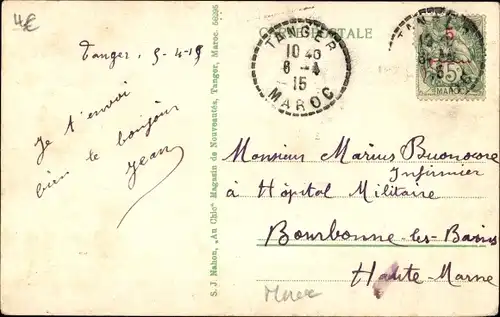 4€
CARTE POSTALE
Tanger, 5-4-15
Je t'envoi
bien le bonjour
Jean
S. J. Nahon, „Au Chic" Magasin de Nouveautés, Tanger, Maroc.
TANGER
10 40
6-4
15
MAROC
TANGER
5
5
MAROC
Monsieur Marius Buonocore
Infirmier
à Hôpital Militaire
Bourbonne-les-Bains
Haute-Marne